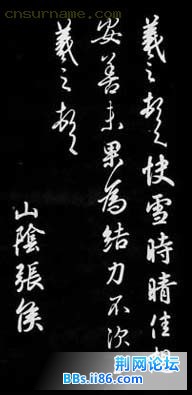 cnsurname.com
羲之頓首快雪時晴佳想
安善未果為結力不次
羲之頓首
山陰張侯
荆网论坛
BBs.ii86.com